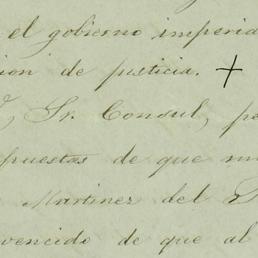 el gobierno imperia
ion de justicia. +
Sr. Consul, pe
puestas de que mi
Martinez del
vencido de que al